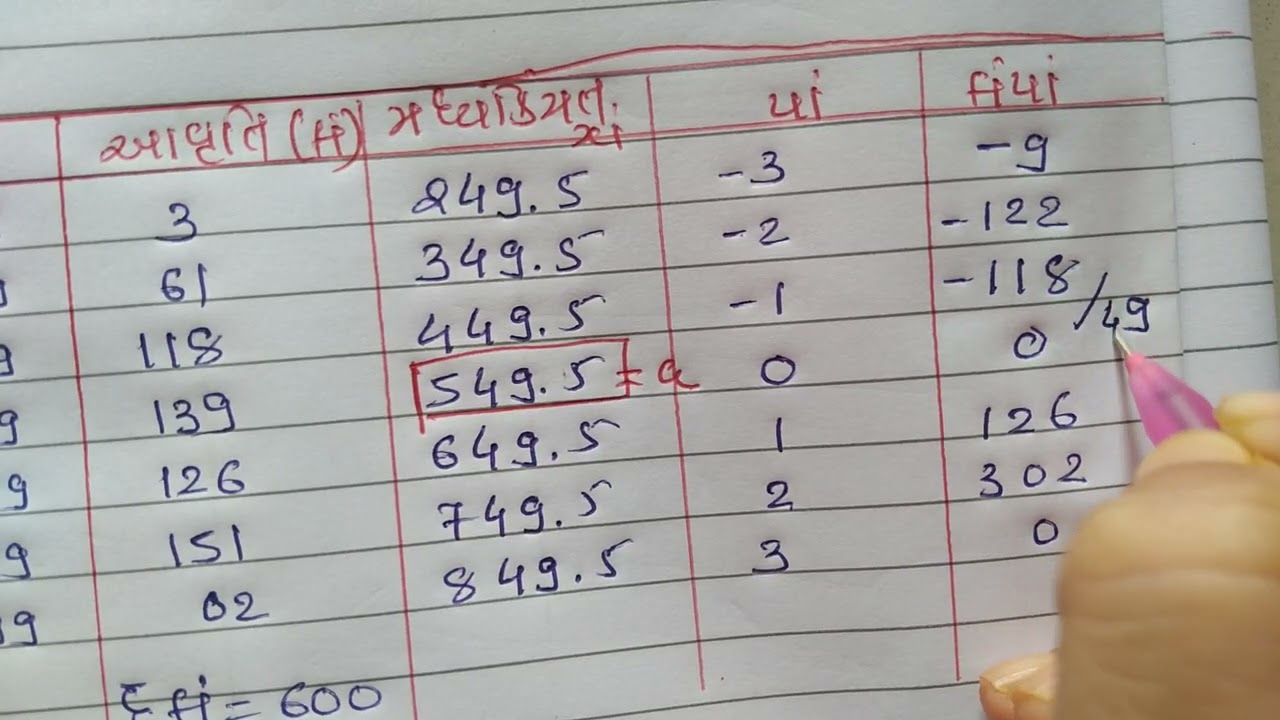 આવૃતિ (fi) મધ્યકિંમત xi yi fiyi
3 249.5 -3 -9
61 349.5 -2 -122
9 118 449.5 -1 -118 /49
9 139 549.5 = a 0 0
9 126 649.5 1 126
9 151 749.5 2 302
9 02 849.5 3 0
Σfi = 600